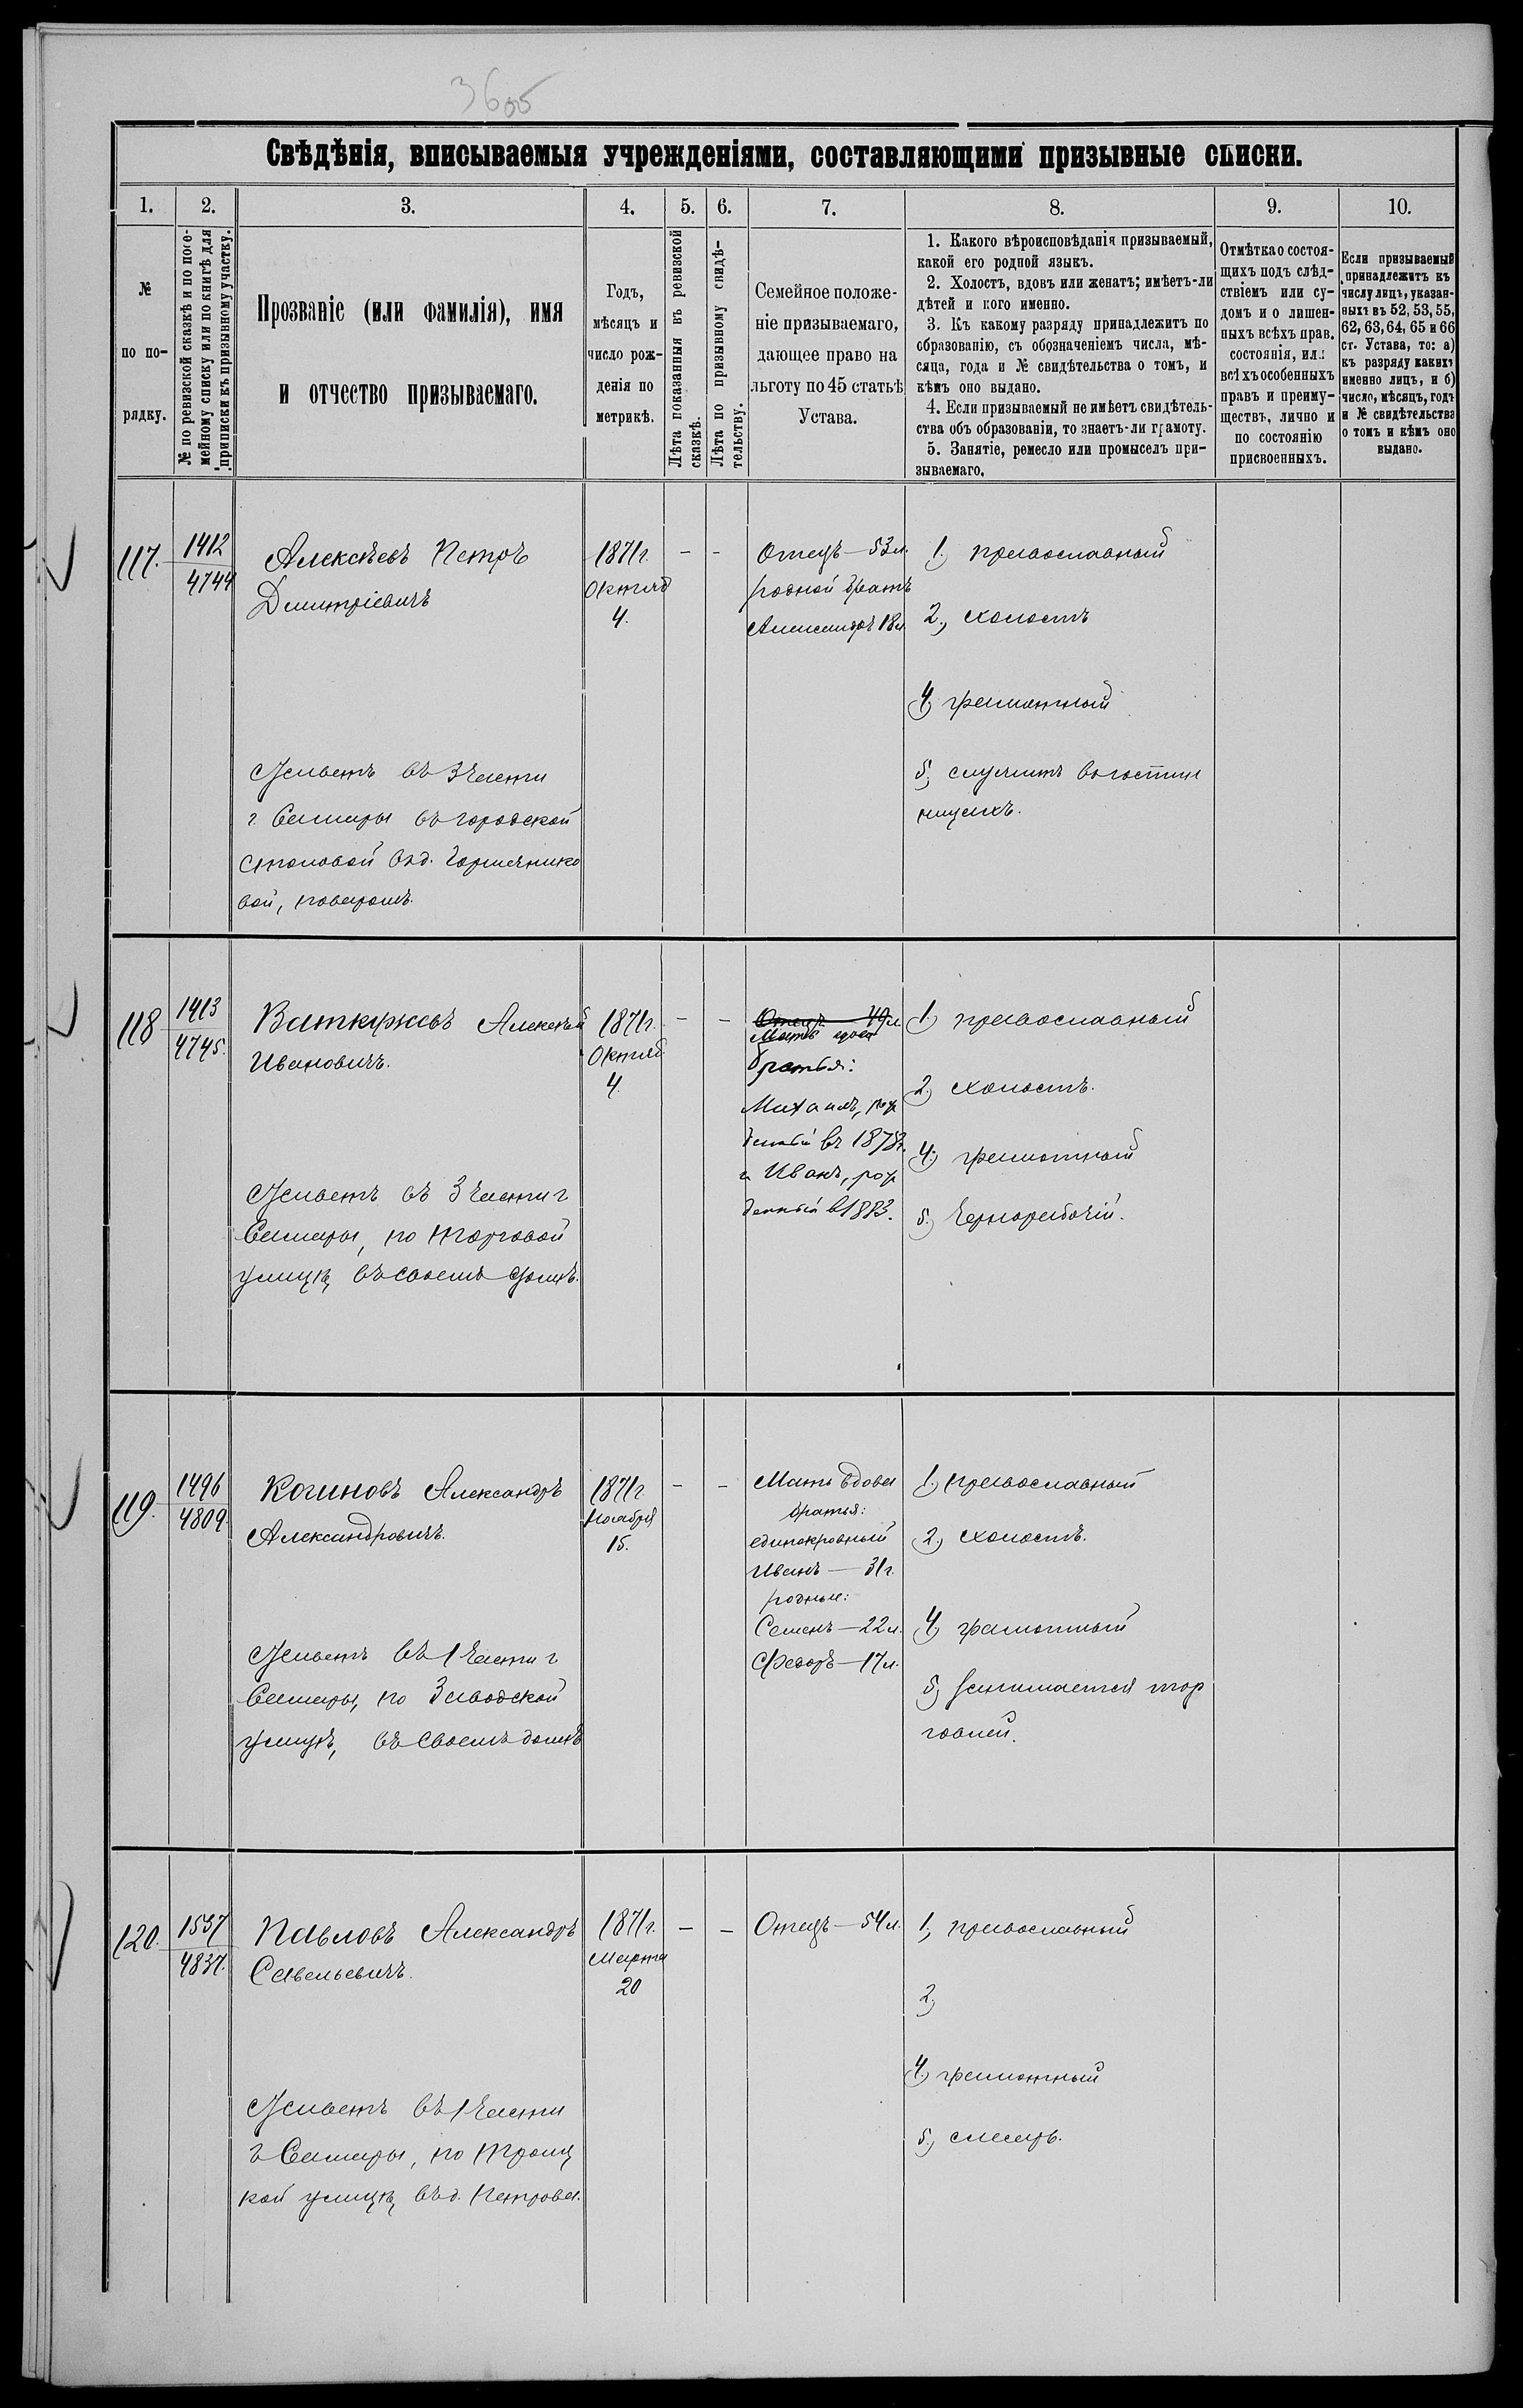 3605
Свѣдѣнія, вписываемыя учрежденіями, составляющими призывные списки.
1.
2.
3.
4.
5.
6.
7.
8.
9.
10.
№
по по-
рядку.
№ по ревизской сказкѣ и по посе-
мейному списку или по книгѣ для
приписки къ призывному участку.
Прозваніе (или фамилія), имя
и отчество призываемаго.
Годъ,
мѣсяцъ и
число рож-
денія по
метрикѣ.
Лѣта показанныя въ ревизской
сказкѣ.
Лѣта по призывному свидѣ-
тельству.
Семейное положе-
ніе призываемаго,
дающее право на
льготу по 45 статьѣ
Устава.
1. Какого вѣроисповѣданія призываемый,
какой его родной языкъ.
2. Холостъ, вдовъ или женатъ; имѣетъ-ли
дѣтей и кого именно.
3. Къ какому разряду принадлежитъ по
образованію, съ обозначеніемъ числа, мѣ-
сяца, года и № свидѣтельства о томъ, и
кѣмъ оно выдано.
4. Если призываемый не имѣетъ свидѣтель-
ства объ образованіи, то знаетъ-ли грамоту.
5. Занятіе, ремесло или промыселъ при-
зываемаго.
Отмѣтка о состоя-
щихъ подъ слѣд-
ствіемъ или су-
домъ и о лишен-
ныхъ всѣхъ прав.
состоянія, или
всѣхъ особенныхъ
правъ и преиму-
ществъ, лично и
по состоянію
присвоенныхъ.
Если призываемый
принадлежитъ къ
числу лицъ, указан-
ныхъ въ 52, 53, 55,
62, 63, 64, 65 и 66
ст. Устава, то: а)
къ разряду какихъ
именно лицъ, и б)
число, мѣсяцъ, годъ
и № свидѣтельства
о томъ и кѣмъ оно
выдано.
117.
1412
4744
Алексѣевъ Петръ
Дмитріевичъ
Живетъ въ 3 части
г. Самары въ городской
столовой въ д. Горшечнико
вой, поваромъ.
1871г.
Октяб
4.
-
-
Отецъ — 53 л.
родной братъ
Александръ 18 л.
1) православный
2., холостъ
4) грамотный
5, служитъ въ гостин
ницахъ.
118
1413
4745.
Ваткужевъ Алексѣй
Ивановичъ.
Живетъ въ 3 части г
Самары, по Торговой
улицѣ, въ своемъ домѣ.
1871г.
Октяб
4.
-
-
Отецъ 49 л.
Мать вдова
братья:
Михаилъ, рож
денный въ 1878г.
и Иванъ, рож
денный в 1883.
1) православный
2) холостъ.
4) грамотный
5.) Чернорабочій.
119.
1496
4809.
Когиновъ Александръ
Александровичъ.
Живетъ въ 1 части г
Самары, по Заводской
улицѣ, въ своемъ домѣ
1871г
Ноября
15.
-
-
Мать вдова
братья:
единокровный
Иванъ — 31 г.
родные:
Семенъ — 22 л.
Федоръ — 17 л.
1.) православный
2) холостъ.
4) грамотный
5) Занимается тор
говлей.
120.
1537
4837.
Павловъ Александръ
Савельевичъ.
Живетъ въ 1 части
г Самары, по Троиц
кой улицѣ, въ д. Петрова.
1871г.
Марта
20
-
-
Отецъ — 54 л.
1, православный
2,
4.) грамотный
5., слесарь.